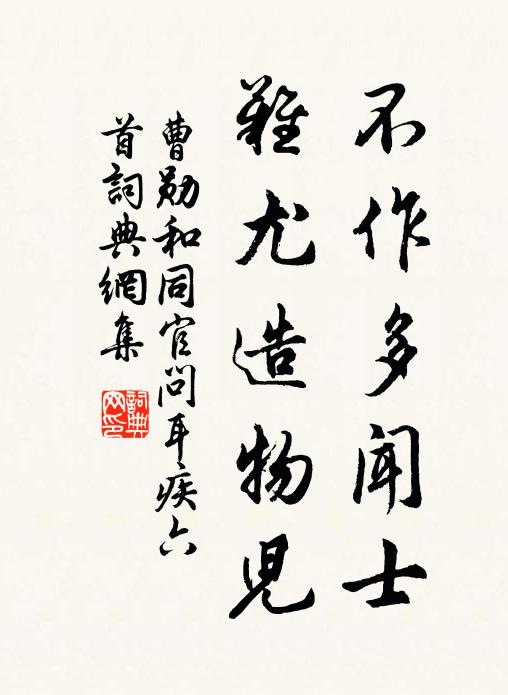 不作多闻士
難尤造物児
曹勛和同官問耳疾六
首詞典網集
詞典
网印